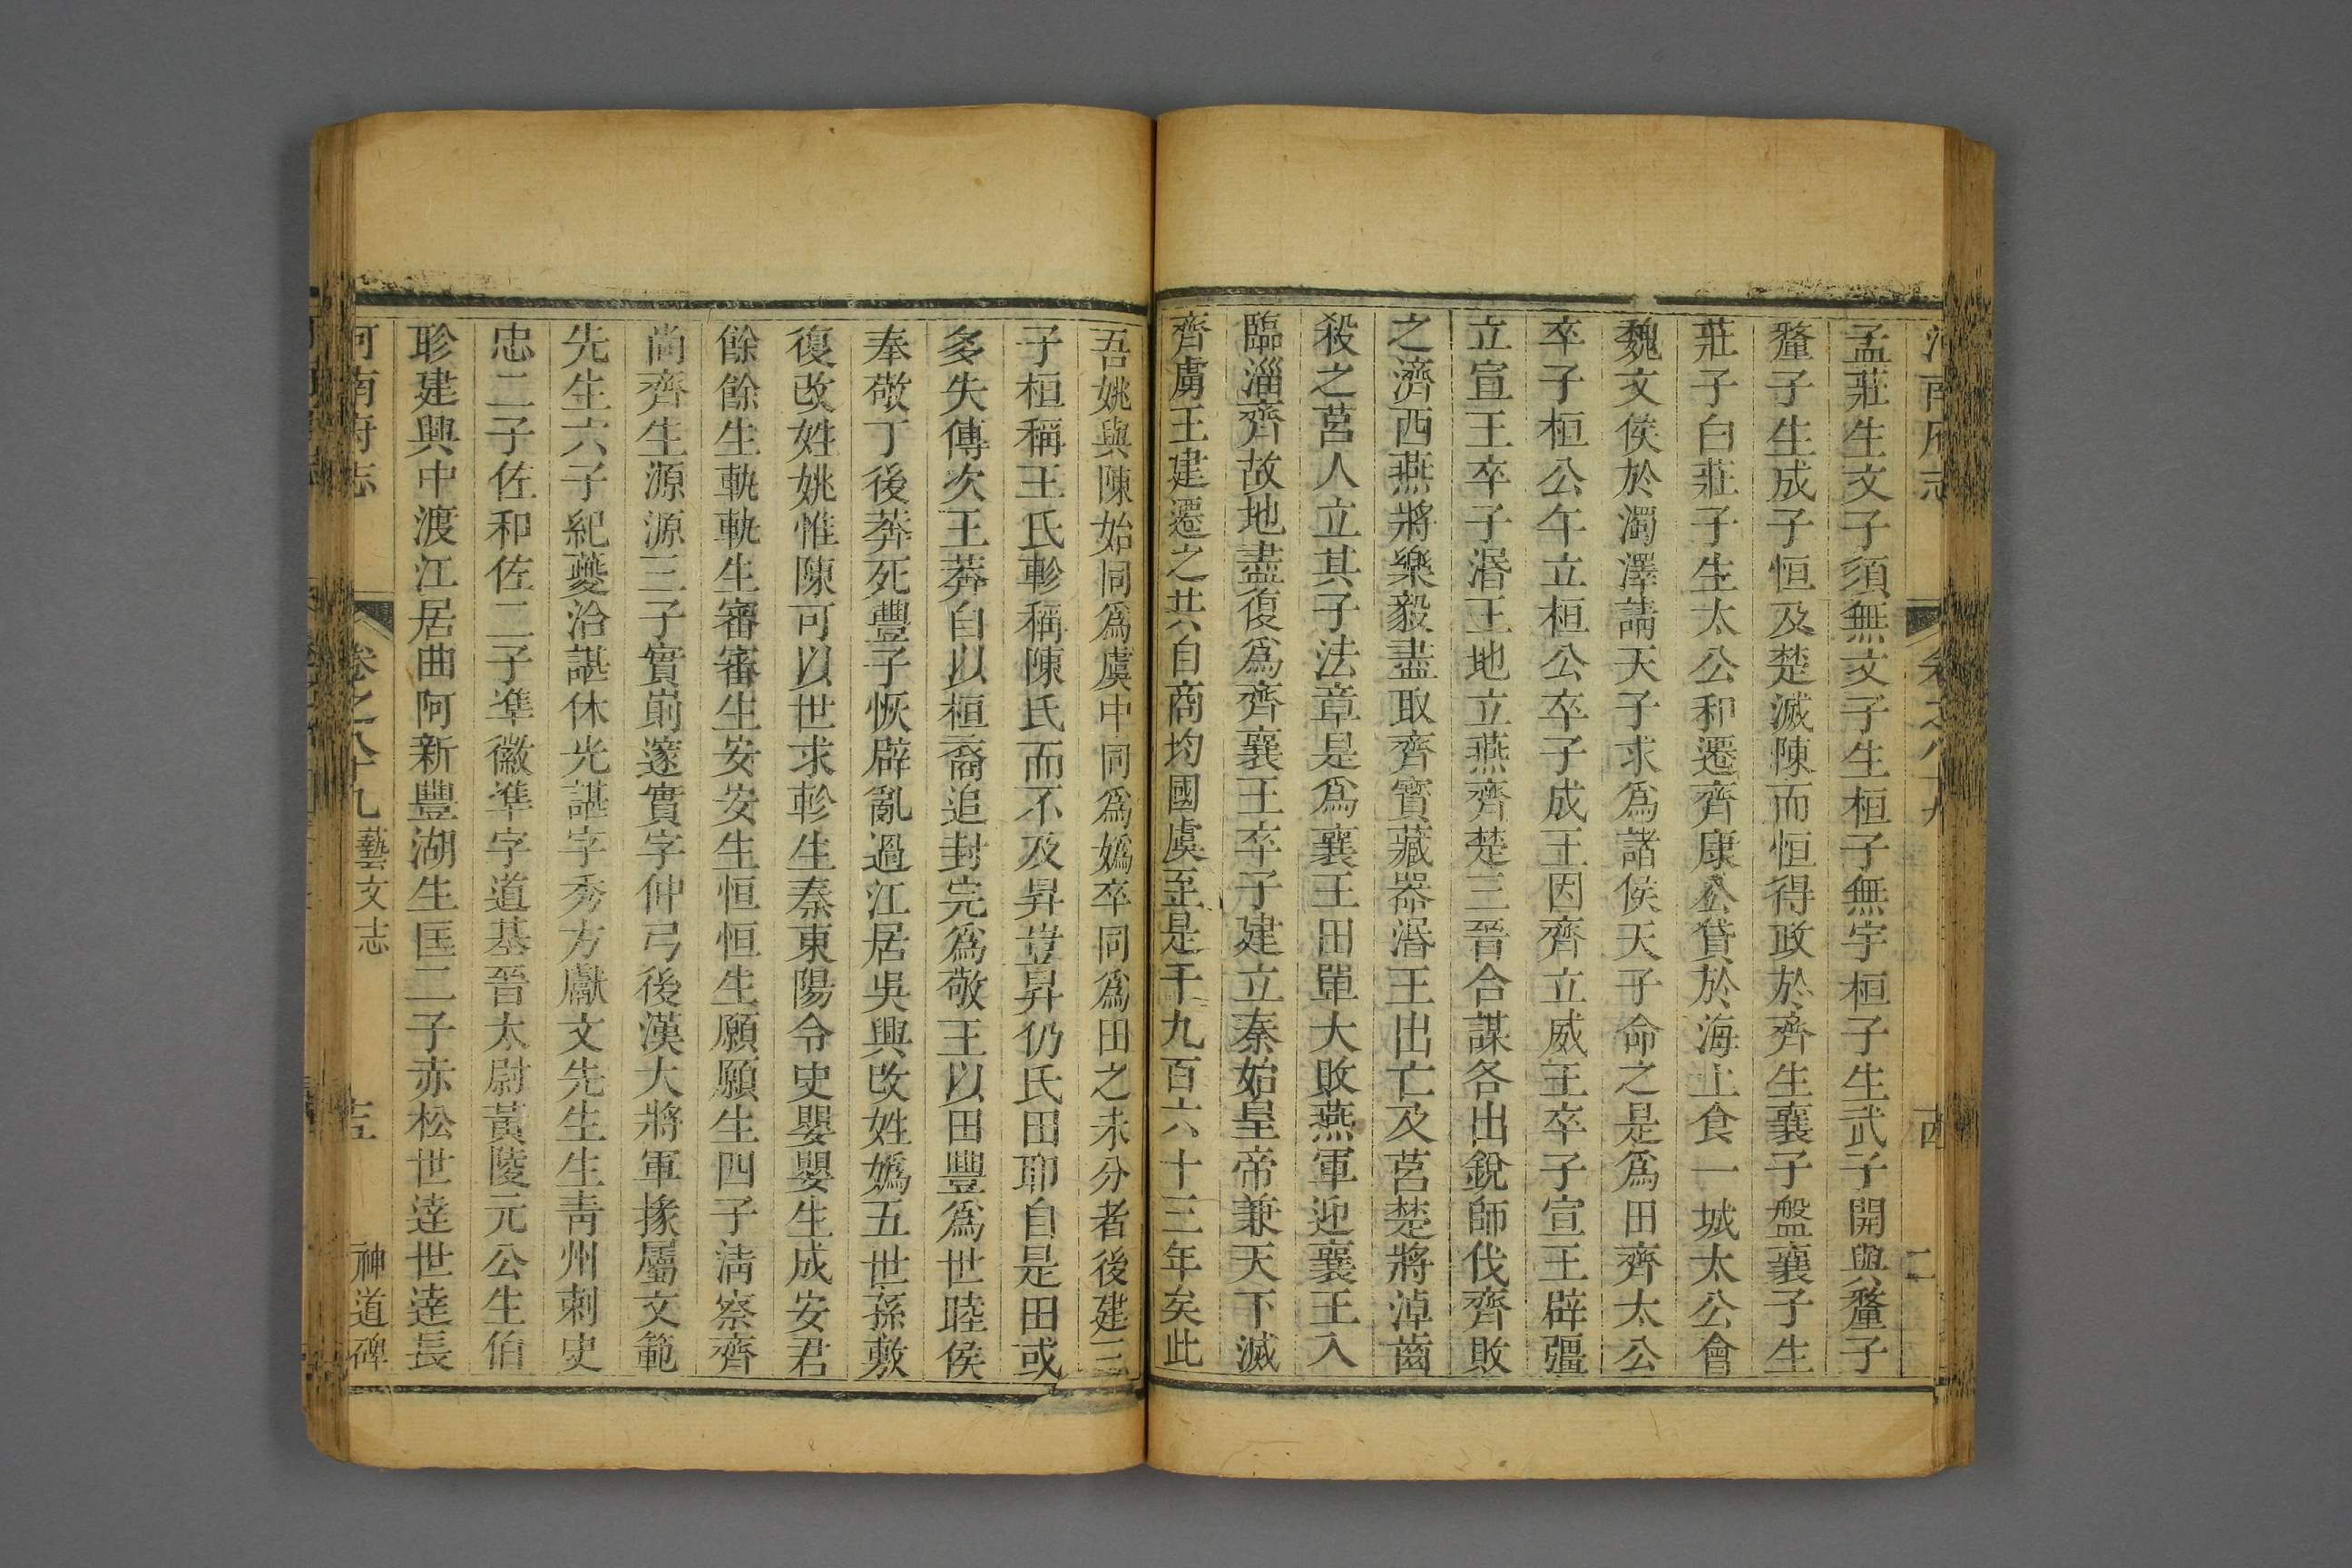 孟莊生文子須無文子生桓子無宇桓子生武子開與釐子
釐子生成子恒及楚滅陳而恒得政於齊生襄子盤襄子生
莊子白莊子生太公和遷齊康公貸於海上食一城太公會
魏文侯於濁澤請天子求爲諸侯天子命之是爲田齊太公
卒子桓公午立桓公卒子成王因齊立威王卒子宣王辟彊
立宣王卒子湣王地立燕齊楚三晉合謀各出銳師伐齊敗
之濟西燕將樂毅盡取齊寳藏器湣王出亡及莒楚將淖齒
殺之莒人立其子法章是爲襄王田單大敗燕軍迎襄王入
臨淄齊故地盡復爲齊襄王卒子建立秦始皇帝兼天下滅
齊虜王建遷之共自商均國虞至是千九百六十三年矣此
吾姚與陳始同爲虞中同爲媯卒同爲田之未分者後建三
子桓稱王氏軫稱陳氏而不及昇豈昇仍氏田耶自是田或
多失傳次王莽自以桓裔追封完爲敬王以田豐爲世睦侯
奉敬丁後莽死豐子恢辟亂過江居吳興改姓媯五世孫敷
復改姓姚惟陳可以世求軫生秦東陽令史嬰嬰生成安君
餘餘生軌軌生審審生安安生恒恒生願願生四子淸察齊
尚齊生源源三子實崱邃實字仲弓後漢大將軍掾屬文範
先生六子紀夔洽諶休光諶字秀方獻文先生生靑州刺史
忠二子佐和佐二子準徽準字道基晉太尉黃陵元公生伯
眕建興中渡江居曲阿新豐湖生匡二子赤松世逹世逹長
河南府志 卷之八十九 藝文志 神道碑